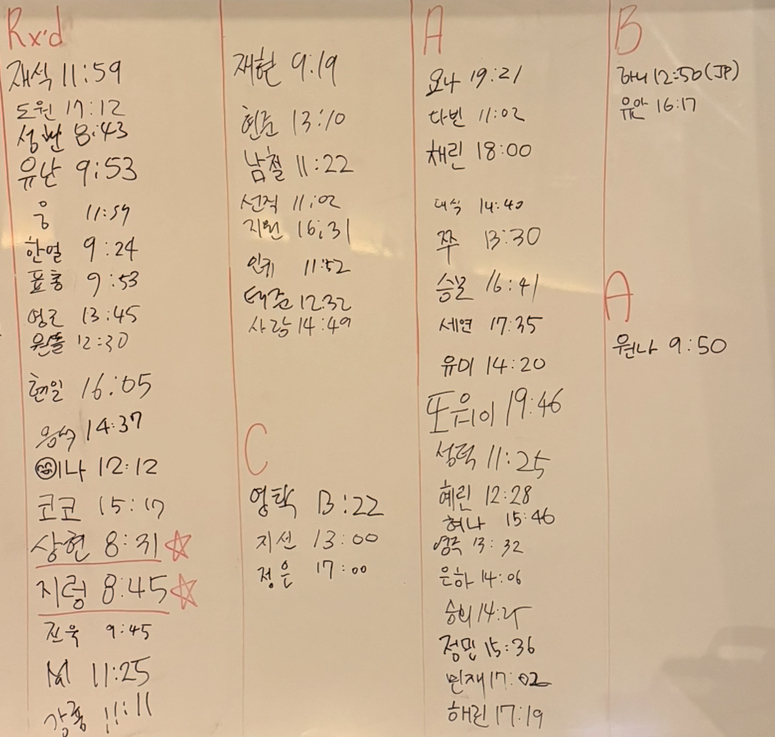 Rx'd
재식 11:59
도원 17:12
성환 8:43
유난 9:53
웅 11:59
한얼 9:24
표홍 9:53
영근 13:45
원돌 12:30
현일 16:05
응석 14:37
이나 12:12
코코 15:17
상현 8:31
지렁 8:45
진욱 9:45
11:25
강풍 11:11
재현 9:19
현준 13:10
남철 11:22
선직 11:02
지원 16:31
인퀴 11:52
태준 12:32
사랑 14:49
C
영탁 13:22
지선 13:00
정은 17:00
A
요나 19:21
다빈 11:02
채린 18:00
대식 14:40
쭈 13:30
승모 16:41
세연 17:35
유미 14:20
또유이 19:46
성덕 11:25
혜린 12:28
혀나 15:46
영주 13:32
은하 14:06
승희 14:25
정민 15:36
민재 17:02
해린 17:19
B
하니 12:50 (JP)
유안 16:17
A
원나 9:50